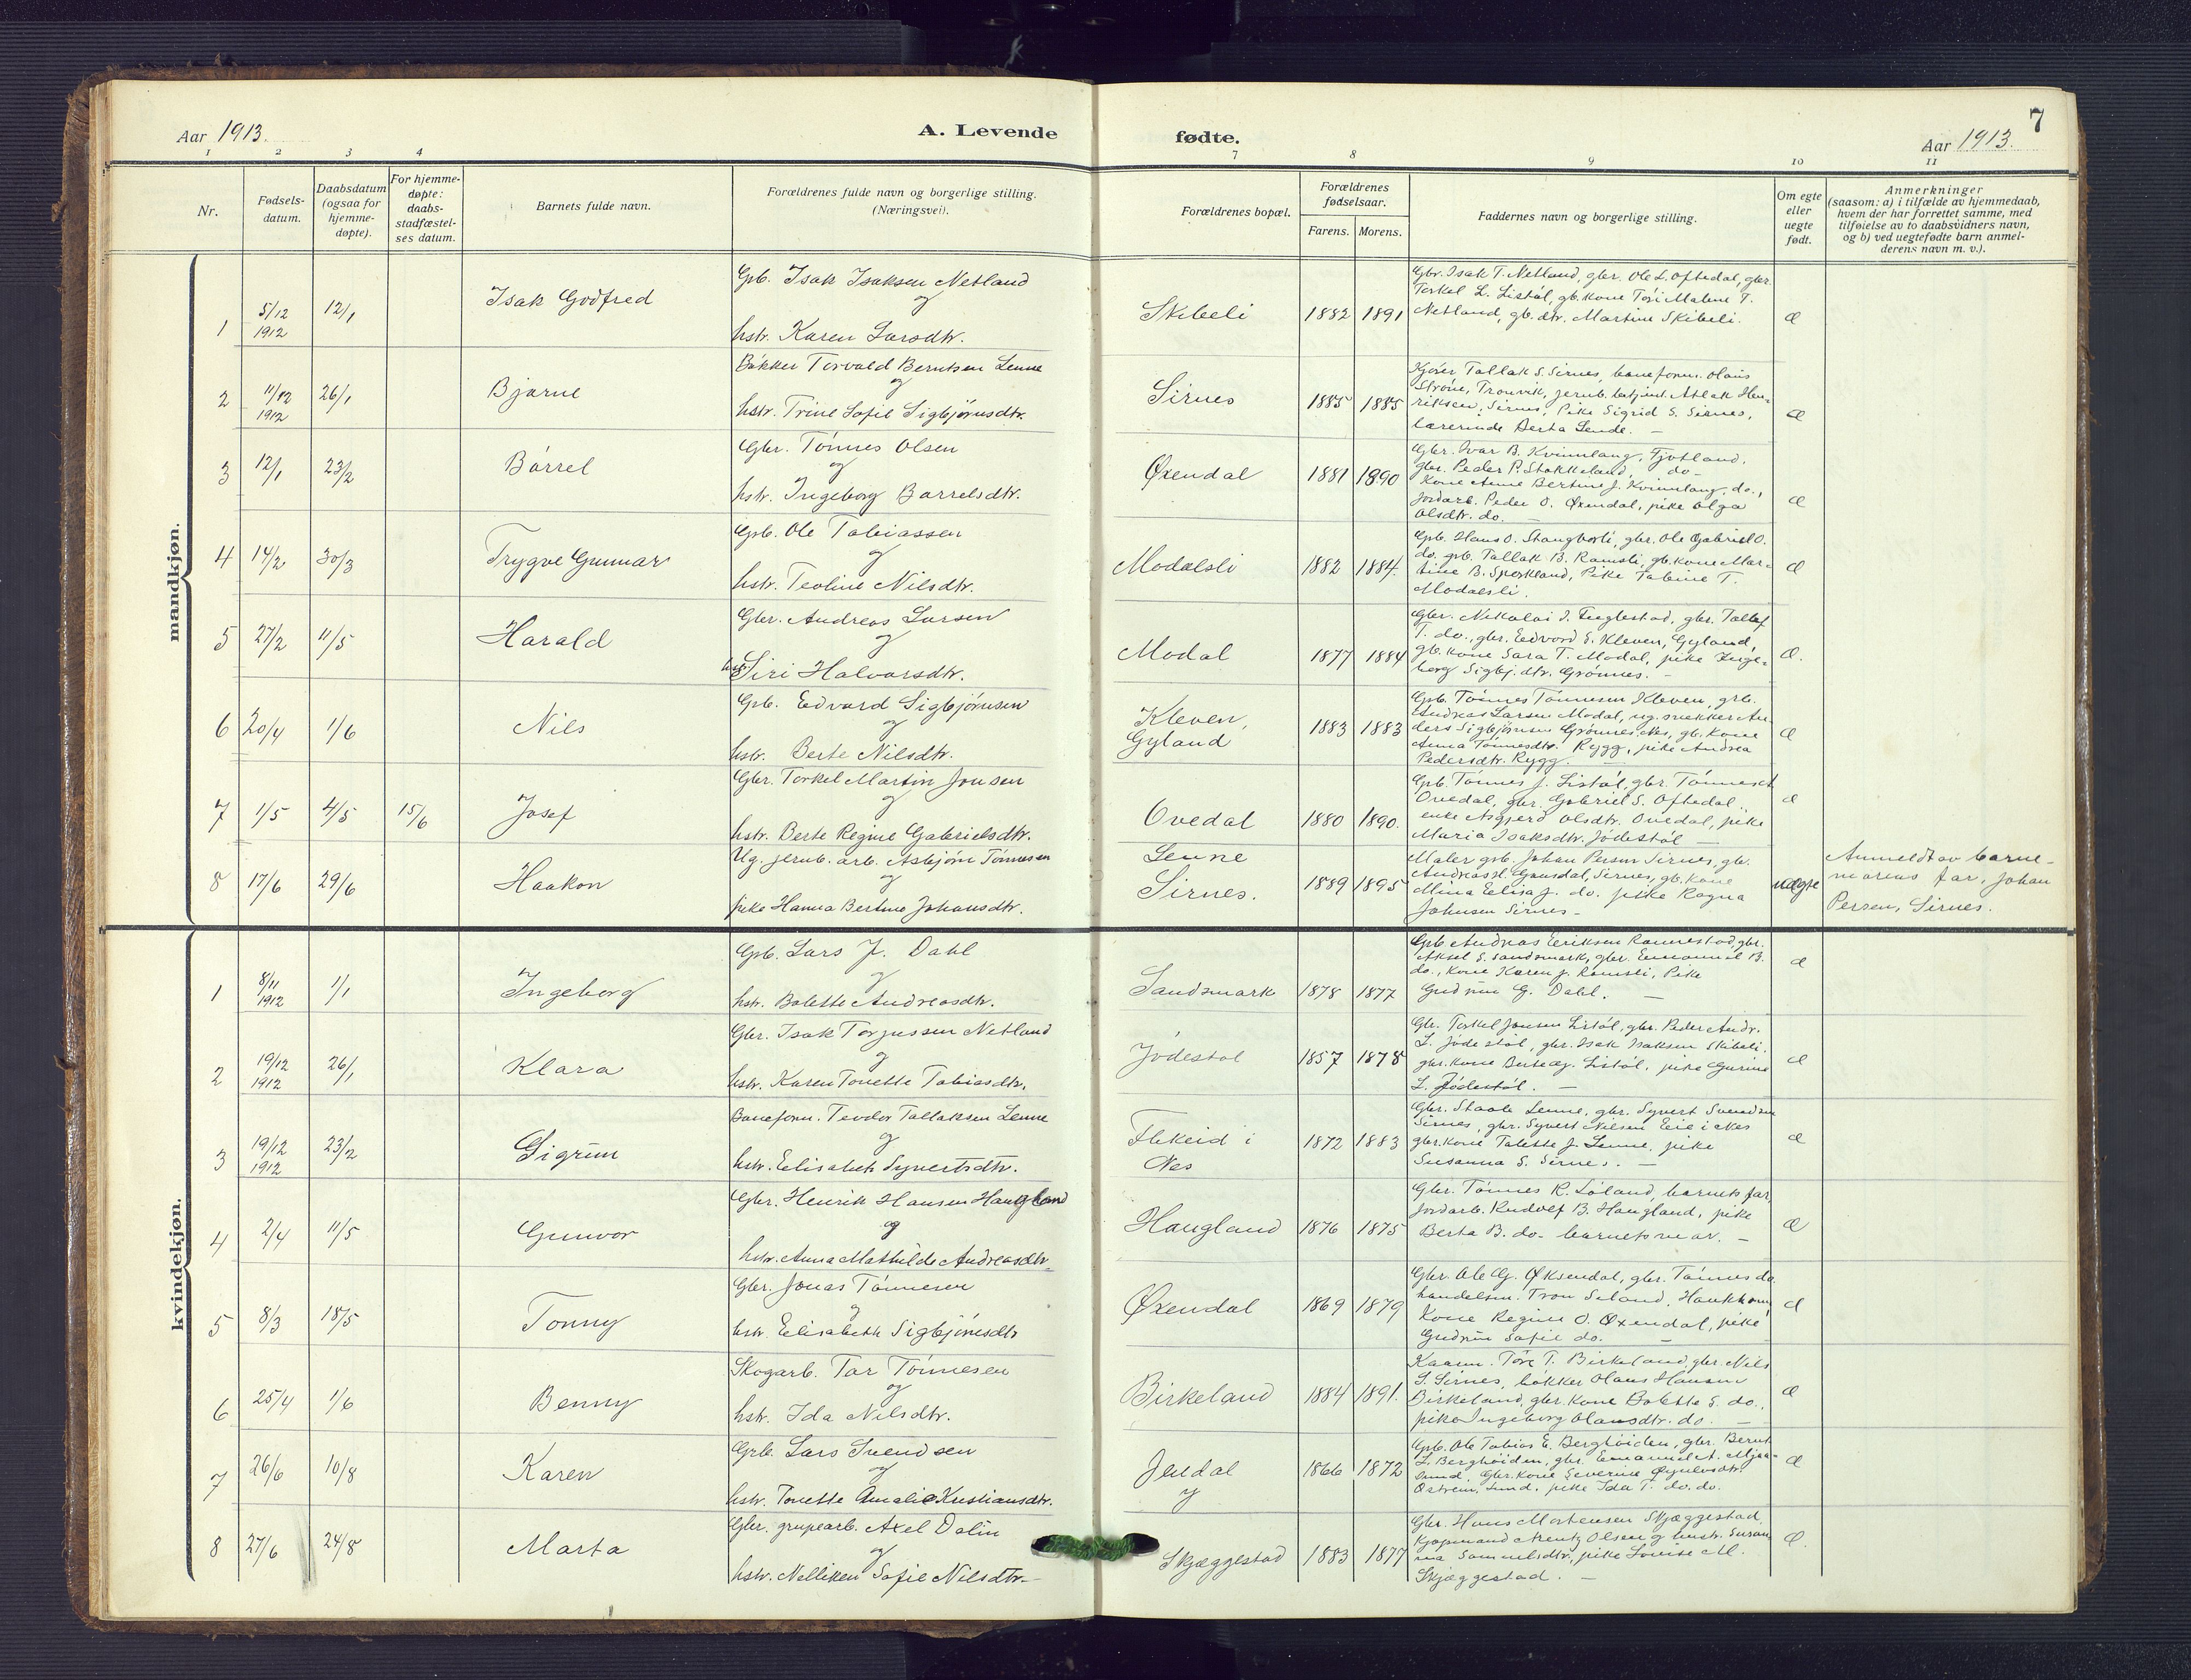 7
Aar 1913.
A. Levende
fødte.
Aar 1913.
1 2 3 4 7 8 9 10 11
Nr.
Fødsels-
datum.
Daabsdatum
(ogsaa for
hjemme-
døpte).
For hjemme-
døpte:
daabs-
stadfæstel-
ses datum.
Barnets fulde navn.
Forældrenes fulde navn og borgerlige stilling.
(Næringsvei).
Forældrenes bopæl.
Forældrenes
fødselsaar.
Farens. Morens.
Faddernes navn og borgerlige stilling.
Om egte
eller
uegte
født.
Anmerkninger
(saasom: a) i tilfælde av hjemmedaab,
hvem der har forrettet samme, med
tilføielse av to daabsvidners navn,
og b) ved uegtefødte barn anmel-
derens navn m. v.).
mandkjøn.
1 5/12 1912 12/1 Isak Godfred
Gpb. Isak Isaksen Netland
og
hstr. Karen Larsdtr.
Skibeli 1882 1891
Gbr. Isak T. Netland, gbr. Ole L. Oftedal, gbr.
Torkel L. Listøl, gb. kone Tori Malene T.
Netland, gb. dtr. Martine Skibeli.
æ
2 11/12 1912 26/1 Bjarne
Bøkker Torvald Berntsen Lenne
og
hstr. Trine Sofie Sigbjørnsdtr.
Sirnes 1885 1885
Kjører Tallak S. Sirnes, baneform. Olaus
Strøne, Tronvik, jernb. betjent. Atlak Hen-
riksen, Sirnes, Pike Sigrid S. Sirnes,
lærerinde Berta Lende. -
æ
3 12/1 23/2 Børrel
Gbr. Tønnes Olsen
og
hstr. Ingeborg Børrelsdtr.
Øxendal 1881 1890
Gbr. Ivar B. Kvinnlaug, Fjotland,
gbr. Peder P. Stakkeland, do-
Kone Anne Bertine J. Kvinnlaug, do.,
Jordarb. Peder O. Øxendal, pike Olga
Olsdtr. do. -
æ
4 14/2 30/3 Trygve Gunnar
Gpb. Ole Tobiassen
og
hstr. Teoline Nilsdtr.
Modalsli 1882 1884.
Gpb. Hans O. Stangborli, gbr. Ole Gabriel O.
do. gpb. Tallak B. Ramsli, gb. kone Mar-
tine B. Sporkland, Pike Tabine T.
Modalsli.
æ
5 27/2 11/5 Harald
Gbr. Andreas Larsen
og
hstr. Siri Halvorsdtr.
Modal 1877 1884
Gbr. Nikolai J. Fuglestad, gbr. Tallef
T. do., gbr. Edvard S. Kleven, Gyland,
gb. kone Sara T. Modal, pike Inge-
borg Sigbj. dtr. Grønnes. -
æ.
6 20/4 1/6 Nils
Gpb. Edvard Sigbjørnsen
og
hstr. Berte Nilsdtr.
Kleven,
Gyland 1883 1883
Gpb. Tønnes Tønnesen Kleven, gpb.
Andreas Larsen Modal, ug. snekker An-
ders Sigbjørnsen Grønnes, Nes, gb. kone
Anna Tønnesdtr. Rygg, pike Andrea
Pedersdtr. Rygg. -
æ
7 1/5 4/5 15/6 Josef
Gbr. Torkel Martin Jonsen
og
hstr. Berte Regine Gabrielsdtr.
Ovedal 1880 1890.
Gpb. Tønnes J. Listøl, gbr. Tønnes
Ovedal, gbr. Gabriel S. Oftedal
enke Asgjerd Olsdtr. Ovedal, pike
Maria Isaksdtr. Jødestøl -
æ
8 17/6 29/6 Haakon
Ug. jernb. arb. Asbjørn Tønnesen
og
pike Hanna Bertine Johansdtr.
Lenne
Sirnes. 1889 1895
Maler gpb. Johan Persen Sirnes, gb.
Andreas Gausdal, Sirnes, gb. kone
Mina Elisa J. do. pike Ragna
Johnsen Sirnes -
uægte
Anmeldt av barne-
morens far, Johan
Persen, Sirnes.
kvindekjøn.
1 8/11 1912 1/1 Ingeborg
Gpb. Lars J. Dahl
og
hstr. Bolette Andreasdtr.
Sandsmark 1878 1877
Gpb Andreas Eriksen Rannestad, gbr.
Aksel S. Sandsmark, gbr. Emanuel B.
do., kone Karen J. Ramsli, Pike
Gudrun G. Dahl. -
æ
2 19/12 1912 26/1 Klara
Gbr. Isak Torjussen Netland
og
hstr. Karen Tonette Tobiasdtr.
Jødestøl 1857 1878
Gbr. Torkel Jonsen Listøl, gbr. Peder Andr.
L. Jødestøl, gbr. Isak Isaksen Skibeli.
gbr. kone Berte G. Listøl, pike Gurine
L. Jødestøl. -
æ
3 19/12 1912 23/2 Sigrun
Baneform. Teodor Tallaksen Lenne
og
hstr. Elisabeth Syvertsdtr.
Flikeid i
Nes 1872 1883
Gbr. Staale Lenne, gbr. Syvert Svendsen
Sirnes, gbr. Syvert Nielsen Eie i Nes
gbr. kone Talette J. Lenne, pike
Susanna S. Sirnes. -
æ
4 2/4 11/5 Gunvor
Gbr. Henrik Hansen Haugland
og
hstr. Anna Mathilde Andreasdtr.
Haugland 1876 1875
Gbr. Tønnes R. Løland, barnets far,
Jordarb. Rudolf B. Haugland, pike
Berta B. do- barnets mor. -
æ
5 8/3 18/5 Tonny
Gbr. Jonas Tønnesen
og
hstr. Elisabeth Sigbjørnsdtr
Øxendal 1869 1879
Gbr. Ole G. Øksendal, gbr. Tønnes do.
handelsm. Tron Seland, Haukhom,
Kone Regine O. Øxendal, pike
Gudrun Sofie do. -
æ
6 25/4 1/6 Benny
Skogarb. Tar Tønnesen
og
hstr. Ida Nilsdtr.
Birkeland 1884 1891.
Kaarm. Tore T. Birkeland, gbr. Nils
S. Sirnes, bøkker Olaus Hansen
Birkeland, gbr. kone Bolette S. do.,
pike Ingeborg Olausdtr. do. -
æ
7 26/6 10/8 Karen
Gpb. Lars Svendsen
og
hstr. Tonette Amalie Kristiansdtr.
Jendal 1866 1872
Gpb. Ole Tobias E. Berghöiden, gbr. Bernt
L. Berghöiden, gbr. Emanuel A. Mjaa-
sund, Gbr. kone Severine
Østrem, Lund, pike Ida T. do. do.
æ
8 27/6 24/8 Marta
Gbr. grupearb. Axel Dalin
og
hstr. Nelliken Sofie Nilsdtr. -
Skjæggestad 1883 1877
Gbr. Hans Mortensen Skjæggestad,
Kjøpmand Arentz Olsen og hustr. Susan-
na Samuelsdtr, pike Lovise M.
Skjæggestad. -
æ.